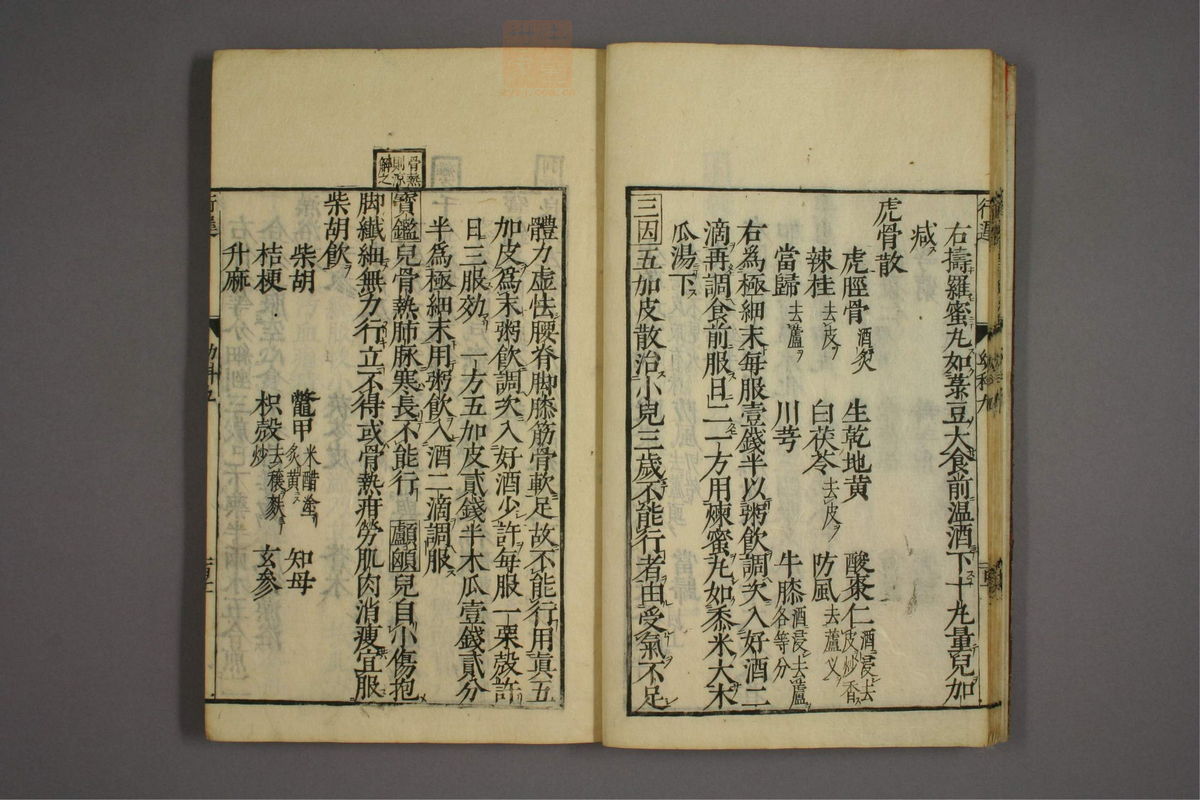 右擣羅蜜丸如菉豆大食前温酒下十丸量兒加
減
虎骨散
虎脛骨酒炙 生乾地黄 酸棗仁酒浸去皮炒香
辣桂去皮 白茯苓去皮 防風去蘆叉
當歸去蘆 川芎 牛膝酒浸去蘆各等分
右爲極細末每服壹錢半以粥飲調次入好酒二
滴再調食前服日二一方用煉蜜丸如黍米大木
瓜湯下
三因五加皮散治小兒三歲不能行者由受氣不足
體力虚怯腰脊脚膝筋骨軟足故不能行用眞五
加皮爲末粥飲調次入好酒少許每服一栗殼許
日三服効 一方五加皮貳錢半木瓜壹錢貳分
半爲極細末用粥飲入酒二滴調服
骨熱則源解之
寳鑑兒骨熱肺脉寒長不能行 顱顖兒自小傷抱
脚纖細無力行立不得或骨熱疳勞肌肉消瘦宜服
柴胡飲
柴胡 鼈甲米醋塗炙黄 知母
桔梗 枳殼去穰麸炒 玄參
升麻